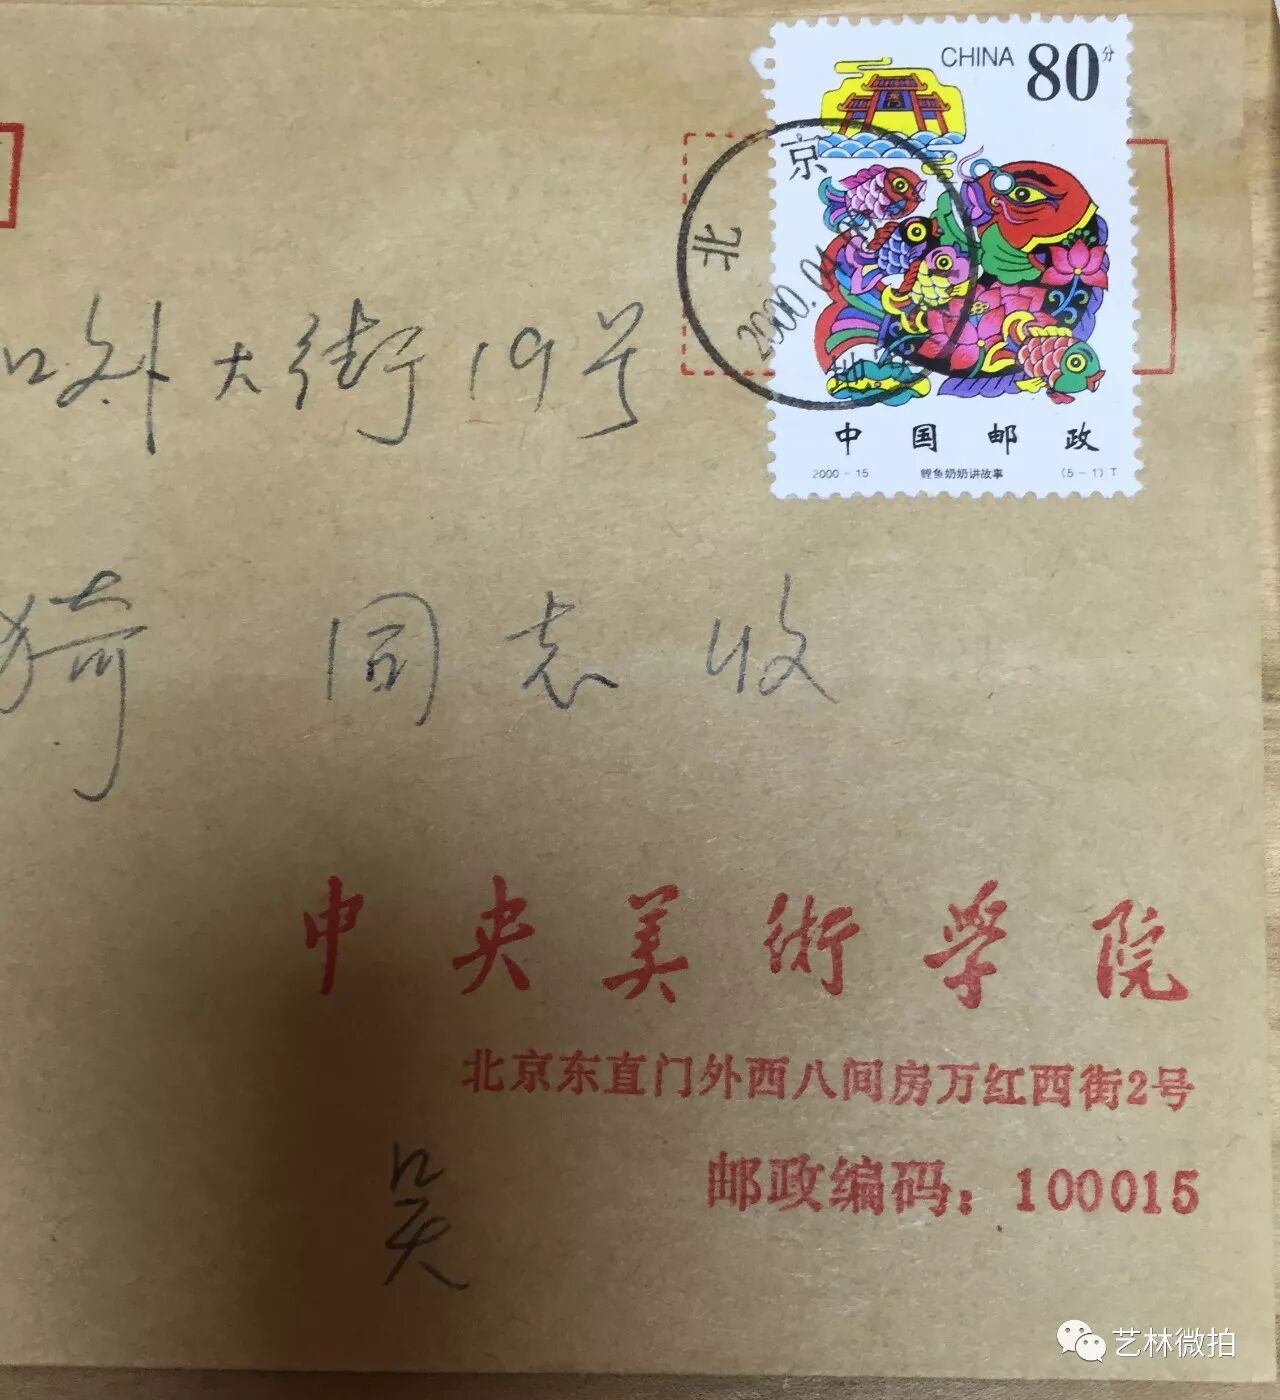 CHINA 80分
北京
2000.0
中国邮政
2000-15 鲤鱼奶奶讲故事 (5-1)T
口外大街19号
猗 同志收
中央美术学院
北京东直门外西八间房万红西街2号
邮政编码：100015
吴
艺林微拍